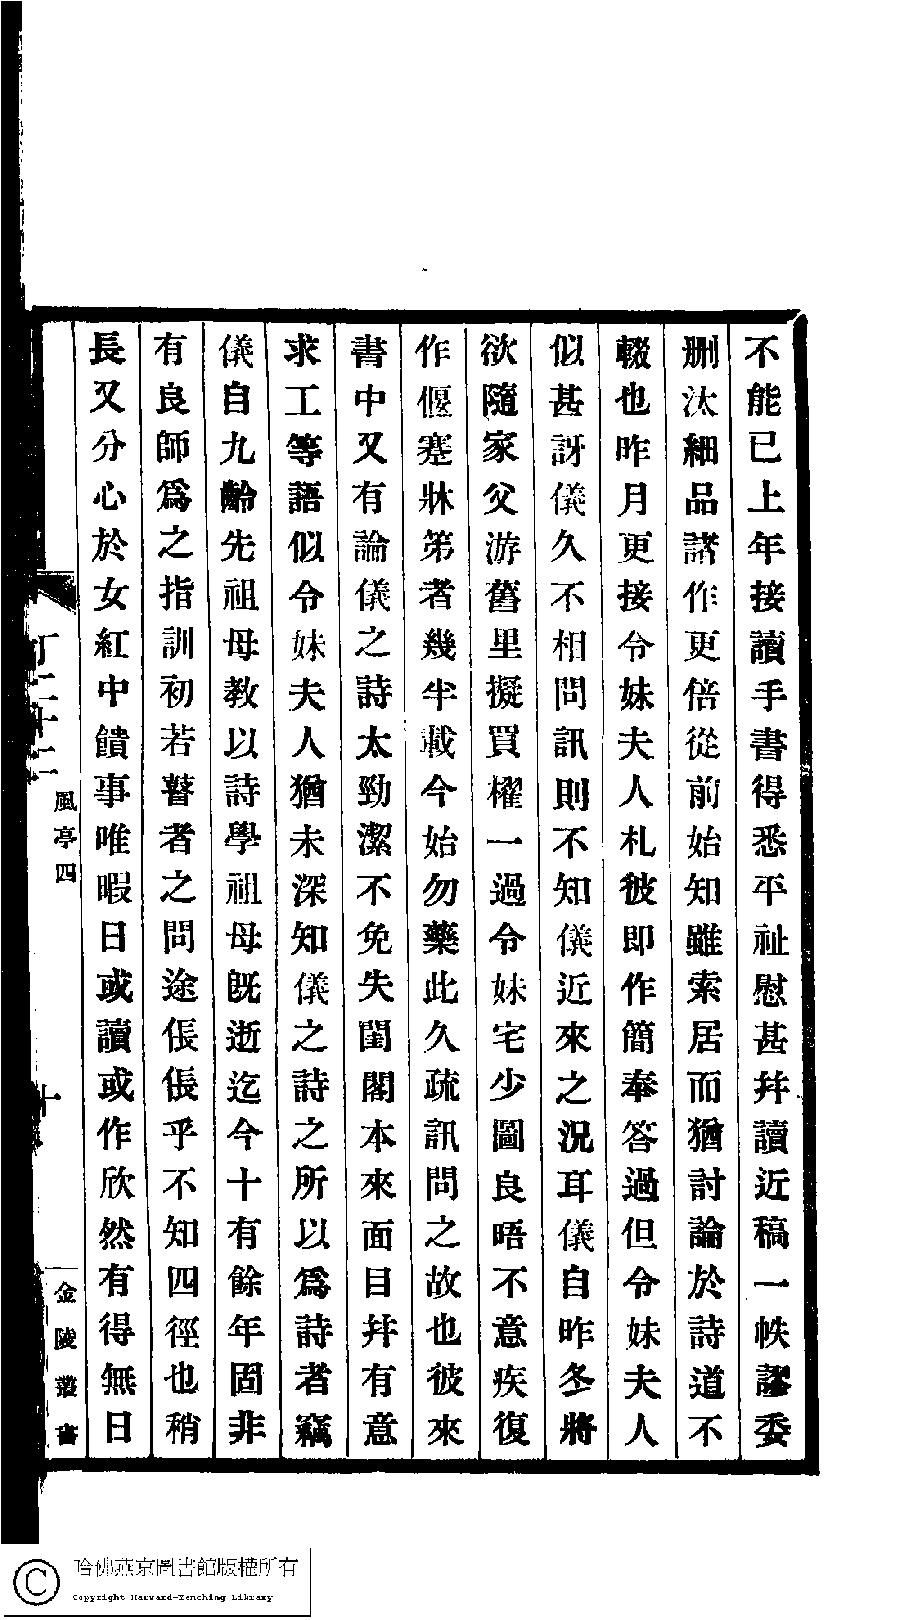 不能已上年接讀手書得悉平祉慰甚幷讀近稿一帙謬委
刪汰細品諸作更倍從前始知雖索居而猶討論於詩道不
輟也昨月更接令妹夫人札彼即作簡奉答過但令妹夫人
似甚訝儀久不相問訊則不知儀近來之況耳儀自昨冬將
欲隨家父游舊里擬買櫂一過令妹宅少圖良晤不意疾復
作偃蹇牀笫者幾半載今始勿藥此久疏訊問之故也彼來
書中又有論儀之詩太勁潔不免失閨閣本來面目幷有意
求工等語似令妹夫人猶未深知儀之詩之所以為詩者竊
儀自九齡先祖母教以詩學祖母旣逝迄今十有餘年固非
有良師為之指訓初若瞽者之問途倀倀乎不知四徑也稍
長又分心於女紅中饋事唯暇日或讀或作欣然有得無日
風亭四
十
金陵叢書
哈佛燕京圖書館版權所有
Copyright Harvard-Yenching Library